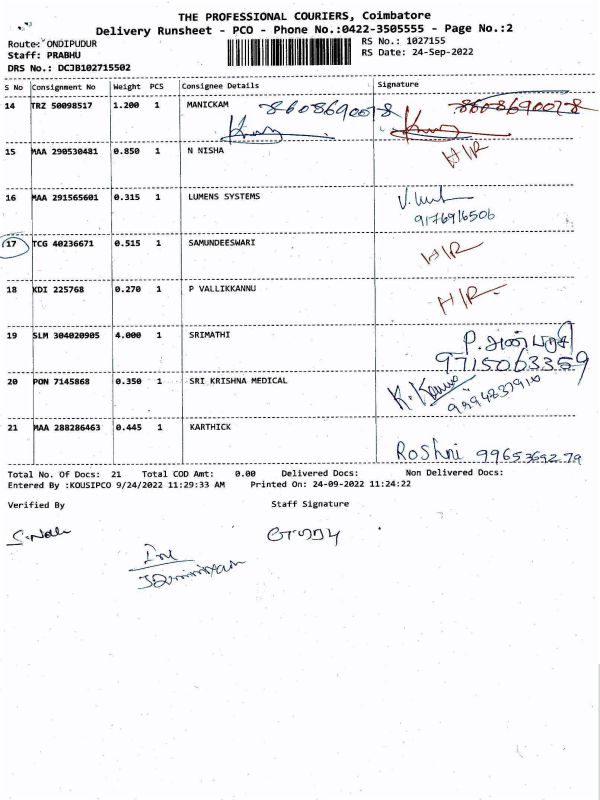 THE PROFESSIONAL COURIERS, Coimbatore
Delivery Runsheet - PCO - Phone No.:0422-3505555 - Page No.:2
Route: ONDIPUDUR
RS No.: 1027155
Staff: PRABHU
RS Date: 24-Sep-2022
DRS No.: DCJB102715502
S No Consignment No Weight PCS Consignee Details Signature
14 TRZ 50098517 1.200 1 MANICKAM 8608690078 8608690078
15 MAA 290530481 0.850 1 N NISHA H/R
16 MAA 291565601 0.315 1 LUMENS SYSTEMS
9176916506
17 TCG 40236671 0.515 1 SAMUNDEESWARI H/R
18 KDI 225768 0.270 1 P VALLIKKANNU H/R
19 SLM 304020905 4.000 1 SRIMATHI
9715063359
20 PON 7145868 0.350 1 SRI KRISHNA MEDICAL
21 MAA 288286463 0.445 1 KARTHICK
Roshni 9965369279
Total No. Of Docs: 21 Total COD Amt: 0.00 Delivered Docs: Non Delivered Docs:
Entered By :KOUSIPCO 9/24/2022 11:29:33 AM Printed On: 24-09-2022 11:24:22
Verified By Staff Signature